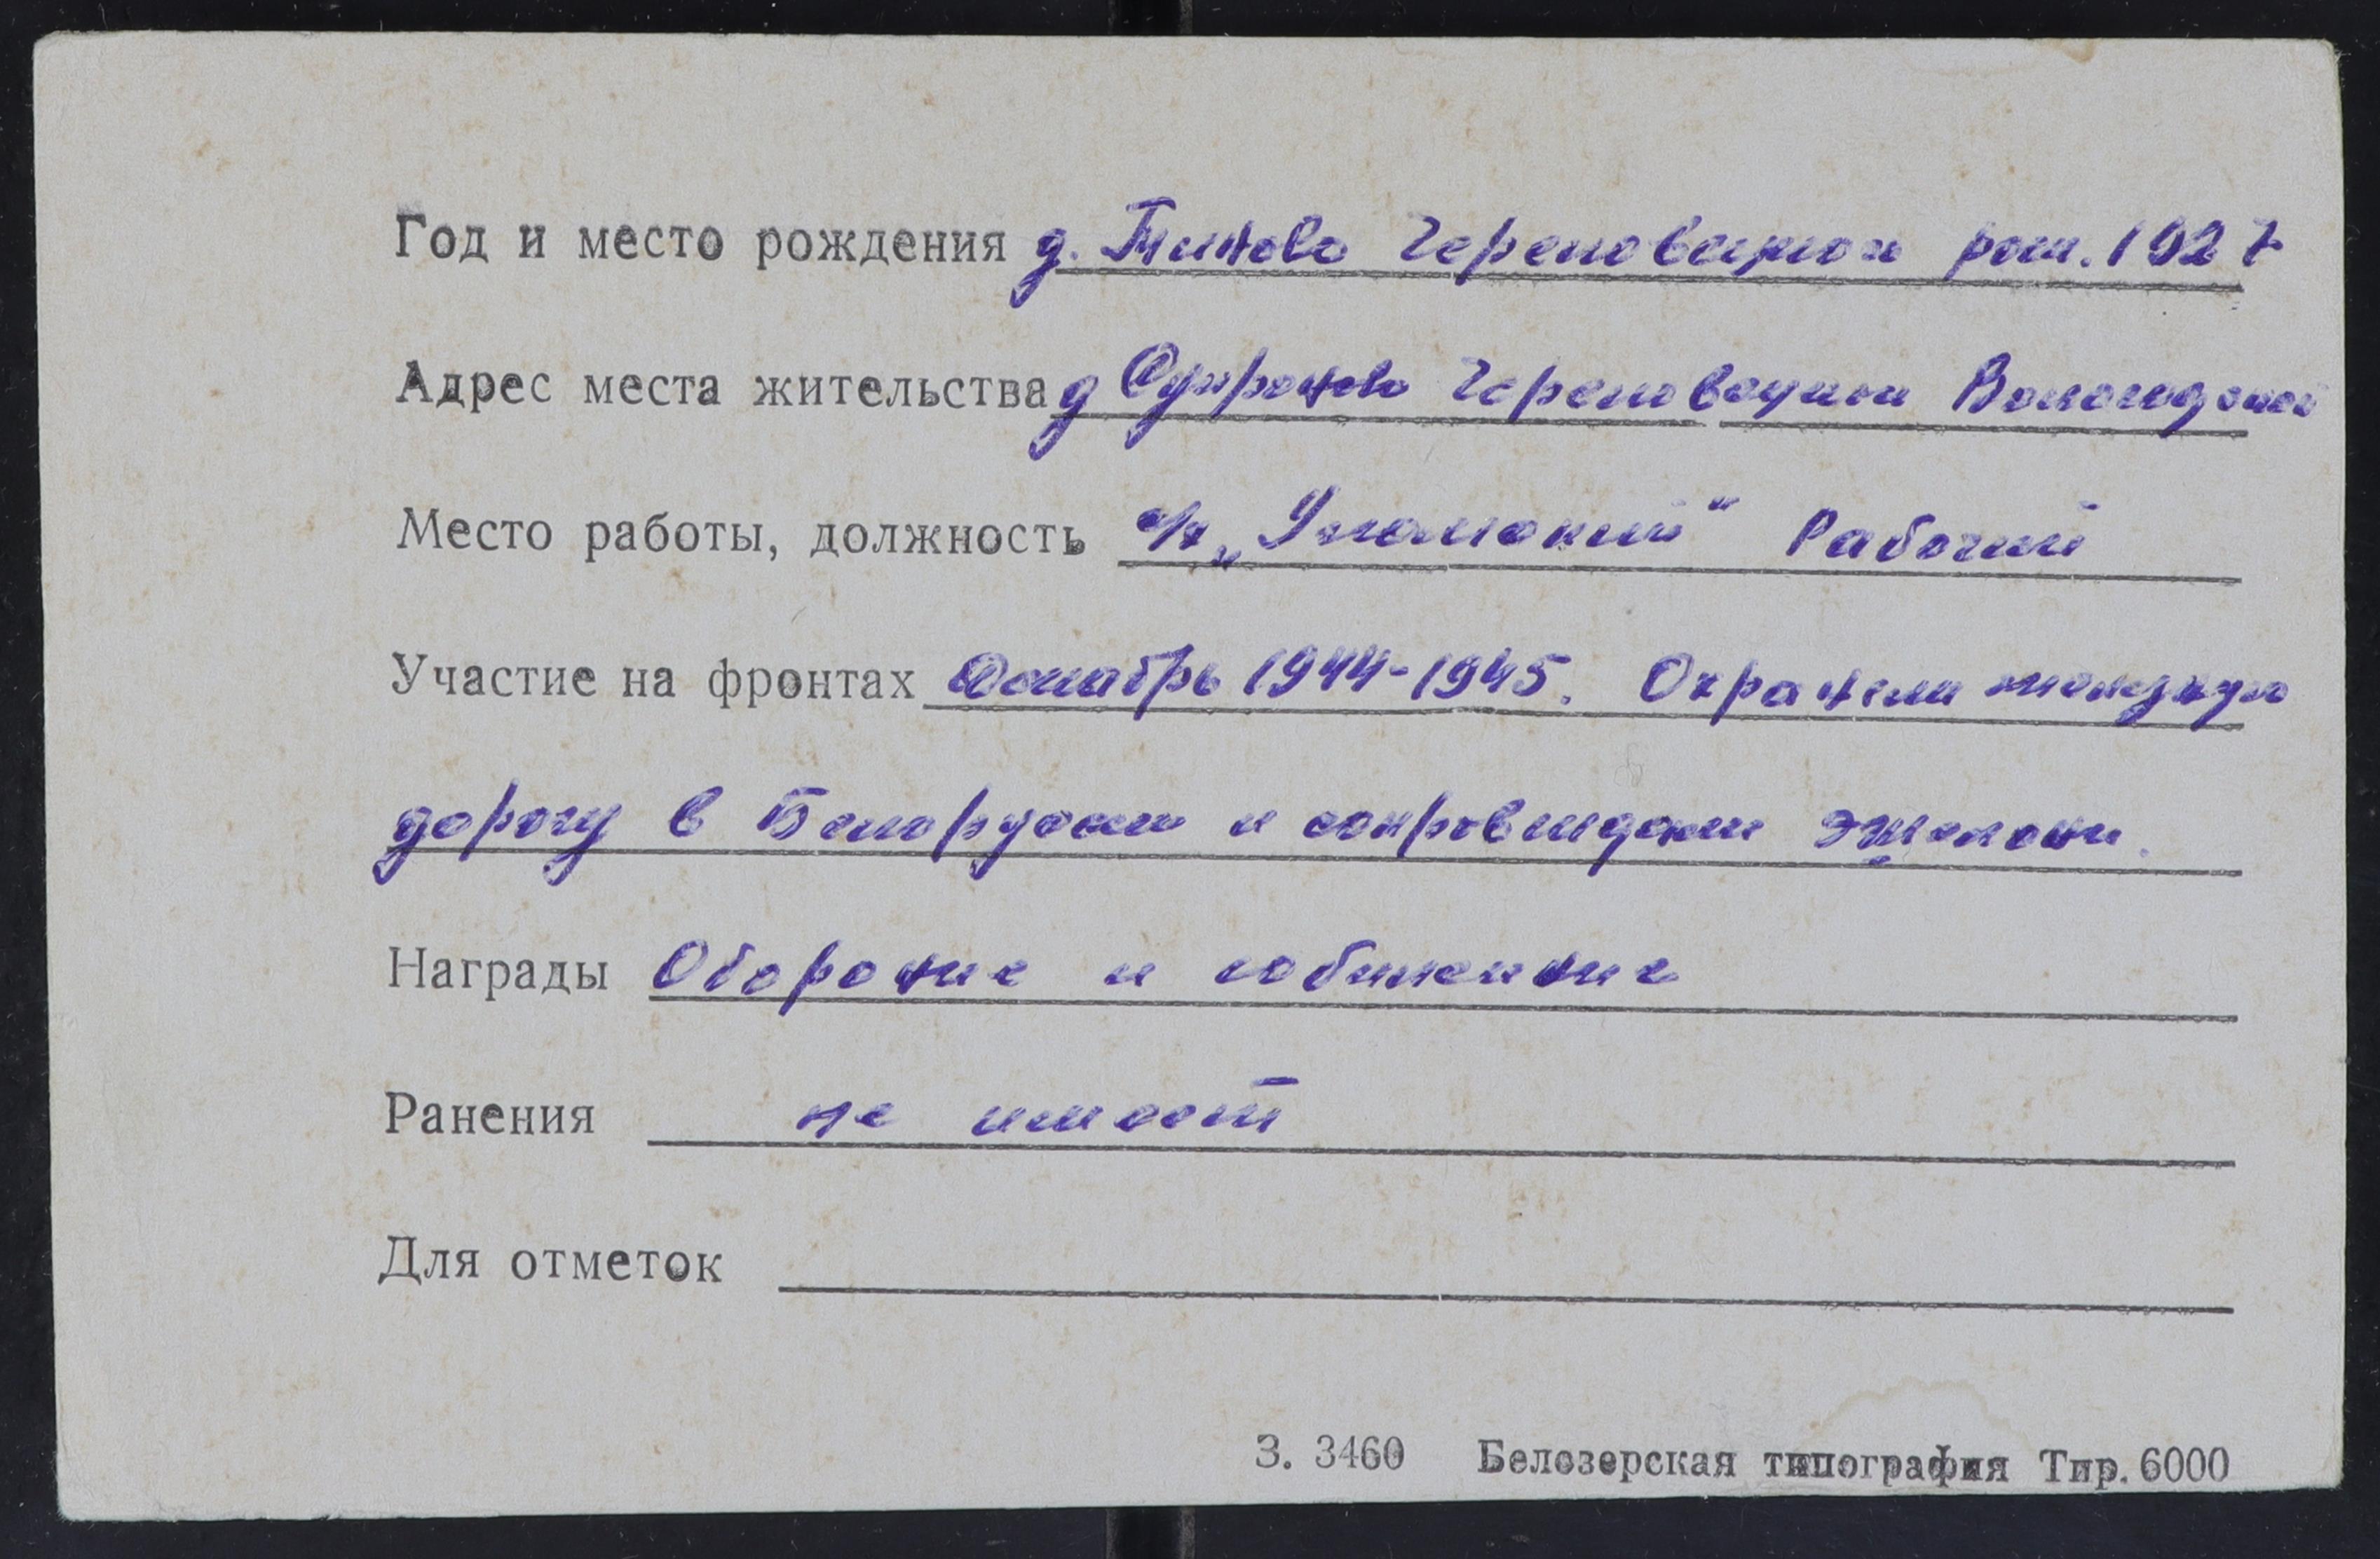 Год и место рождения д. Тиново Череповецкой рож. 1927
Адрес места жительства д Софроново Череповецкий Вологодской
Место работы, должность с/х „Уломский“ Рабочий
Участие на фронтах Декабрь 1944-1945. Охраняли железную
дорогу в Белоруссии и сопровождали эшелони.
Награды Оборонне и юбилейние
Ранения не имеет
Для отметок
З. 3460 Белозерская типография Тир. 6000